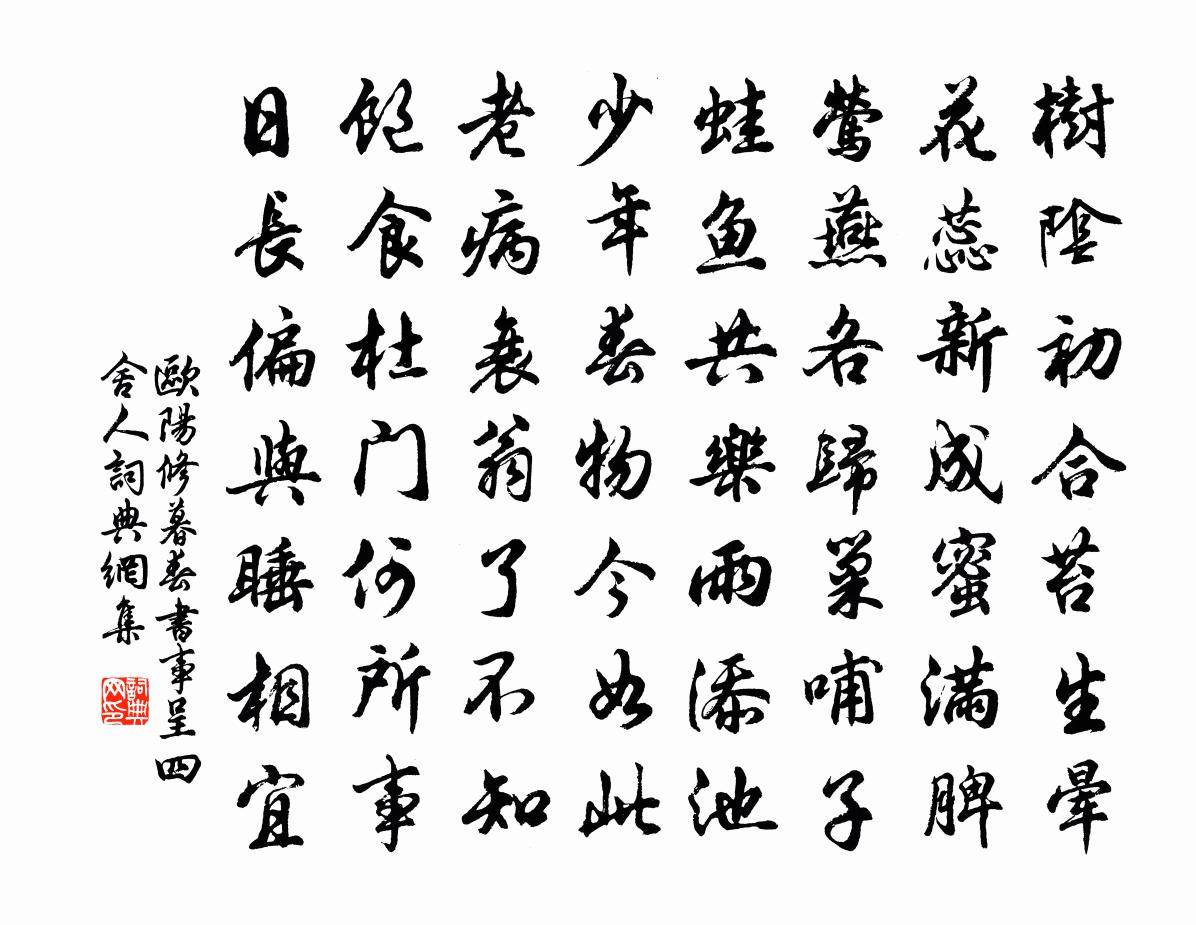 樹陰初合苔生暈
花蕊新成蜜滿脾
鶯燕各歸巢哺子
蛙鱼共樂雨添池
少年春物今如此
老病衰翁了不知
飽食杜门何所事
日長偏與睡相宜
歐陽修暮春書事呈四
舍人詞典網集
詞典网印